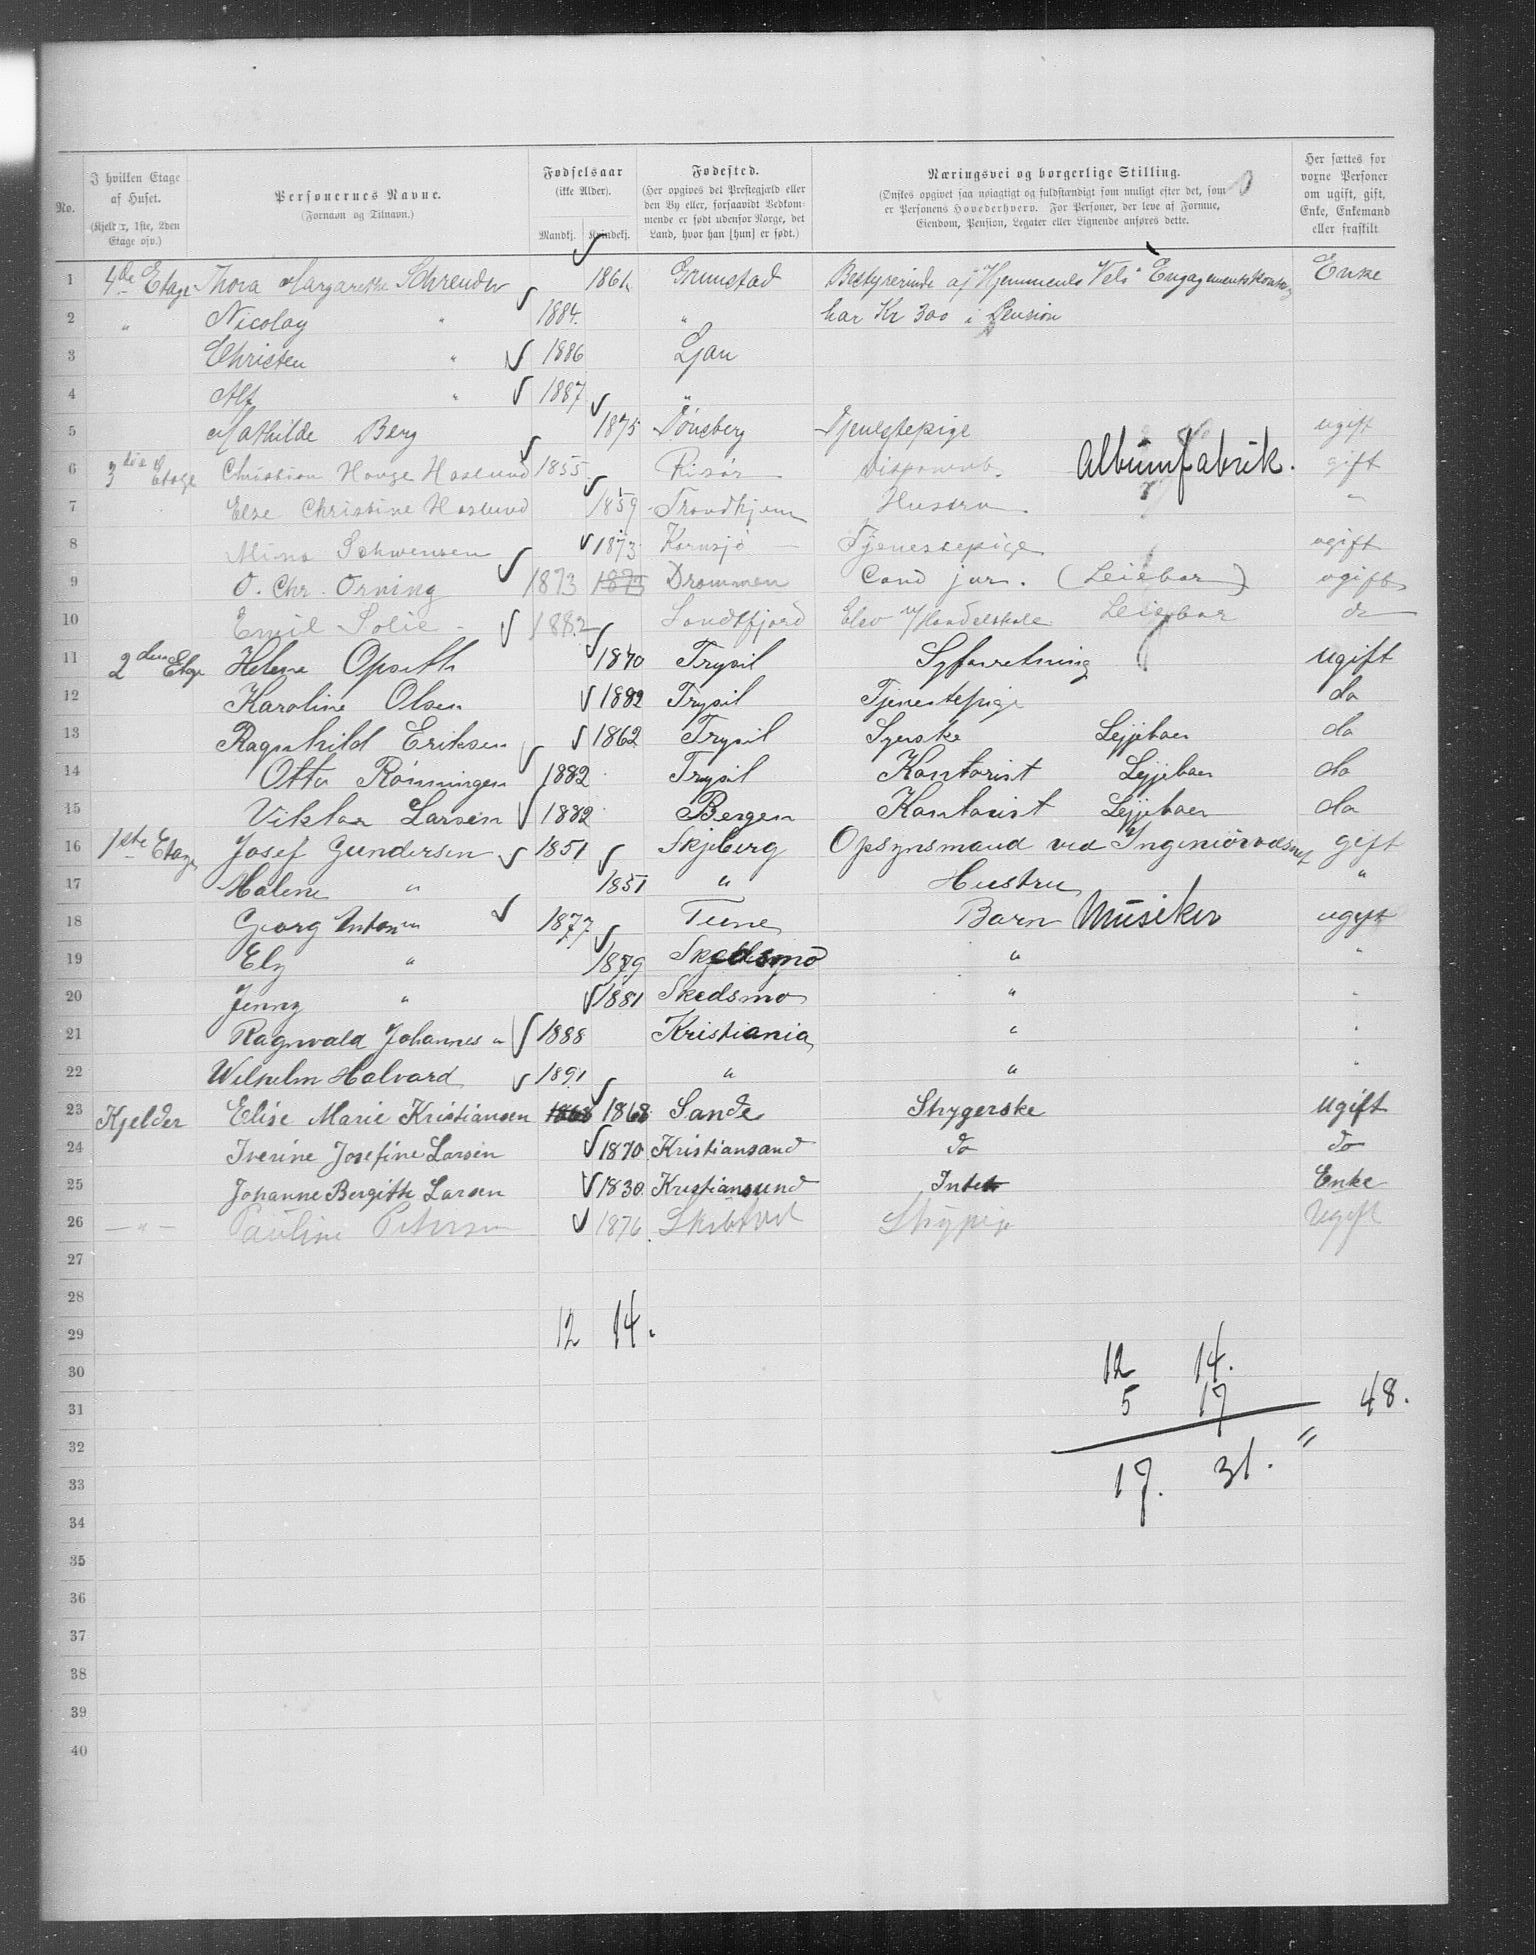 No.
I hvilken Etage af Huset.
(Kjelder, 1ste, 2den Etage osv.)
Personernes Navne.
(Fornavn og Tilnavn.)
Fødselsaar
(ikke Alder).
Mandkj. Kvindekj.
Fødested.
(Her opgives det Prestegjæld eller den By eller, forsaavidt Vedkommende er født udenfor Norge, det Land, hvor han [hun] er født.)
Næringsvei og borgerlige Stilling.
(Ønskes opgivet saa nøiagtigt og fuldstændigt som muligt efter det, som er Personens Hovederhverv. For Personer, der leve af Formue, Eiendom, Pension, Legater eller Lignende anføres dette.
Her sættes for voxne Personer om ugift, gift, Enke, Enkemand eller fraskilt
1 4de Etage Thora Margarethe Schreuder 1861 Grimstad Bestyrerinde af Hjemmenes Vels Engagementskontor Enke
2 " Nicolay " 1884 " har Kr 300 i Pension
3 Christen " 1886 Ljan
4 Alf " 1887 "
5 Mathilde Berg 1875 Tönsberg Tjenestepige ugift
6 3die Etage Christian Hauge Haslund 1855 Risør Disponent Albumfabrik. gift
7 Else Christine Haslund 1859 Trondhjem Hustru "
8 Mina Schwensen 1873 Kornsjø Tjenestepige ugift
9 O. Chr. Orning 1873 Drammen Cand jur. (Leiebor) ugift
10 Emil Solie 1882 Sandefjord Elev v/Handelskole Leiebor do
11 2den Etage Helene Opseth 1870 Trysil Syforretning ugift
12 Karoline Olsen 1882 Trysil Tjenestepige do
13 Ragnhild Eriksen 1862 Trysil Syerske Lejjeboer do
14 Otto Rønningen 1882 Trysil Kontorist Lejjeboer do
15 Viktor Larsen 1882 Bergen Kontorist Lejjeboer do
16 1ste Etage Josef Gundersen 1851 Skjeberg Opsynsmand ved Ingeniörvæsnet gift
17 Malene " 1851 " Hustru "
18 Georg Anton " 1877 Tune Barn Musiker ugift
19 Ely " 1879 Skedsmo " "
20 Jenny " 1881 Skedsmo " "
21 Ragnvald Johannes " 1888 Kristiania " "
22 Wilhelm Halvard 1891 " " "
23 Kjelder Elise Marie Kristiansen 1868 1868 Sande Strygerske ugift
24 Iverine Josefine Larsen 1870 Kristiansand do do
25 Johanne Bergitte Larsen 1830 Kristiansund Intet Enke
26 — " — Pauline Petersen 1876 Skibtvet Strypige Ugift
27
28
29 12 14.
30 12 14.
31 5 17 48.
32
33 17. 31. "
34
35
36
37
38
39
40